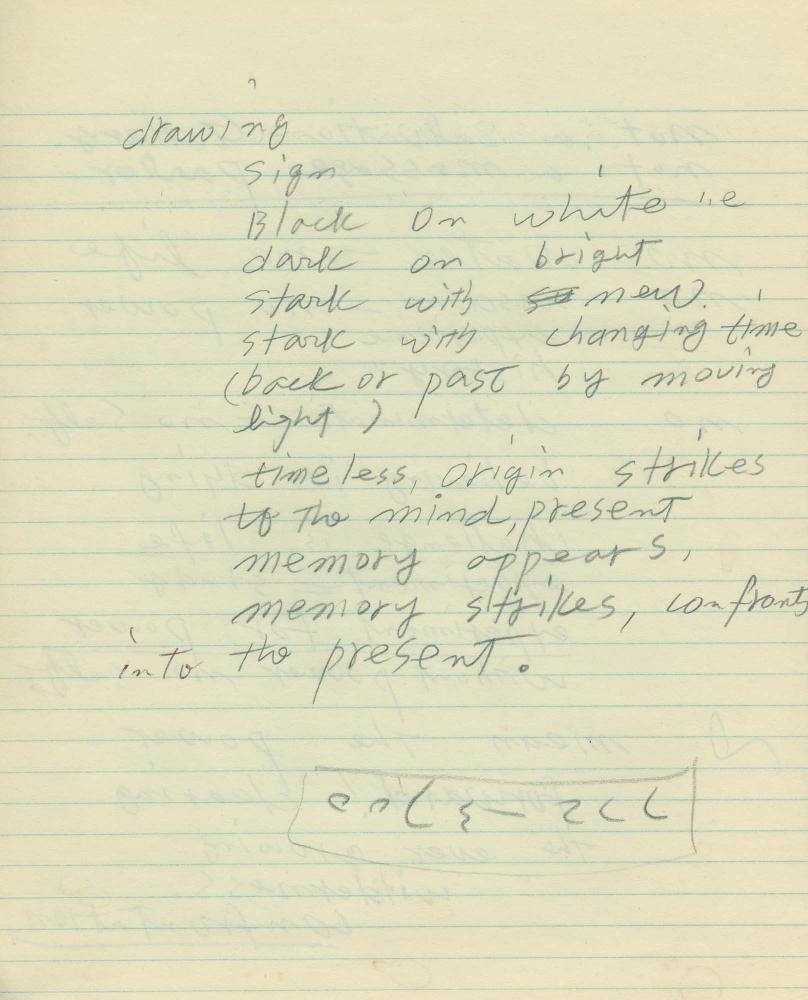 drawing
sign
Black on white i.e
dark on bright
stark with new.
stark with changing time
(back or past by moving
light)
timeless, origin strikes
to the mind, present
memory appears,
memory strikes, confronts
into the present.